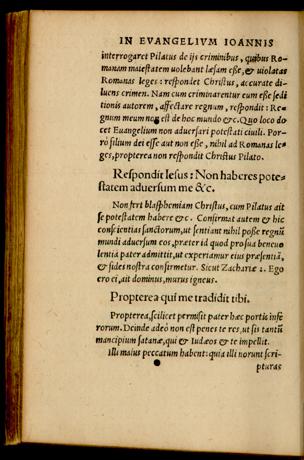 IN EVANGELIVM IOANNIS
interrogaret Pilatus de ijs criminibus, quibus Ro-
manam maiestatem uolebant læsam eße, & uiolatas
Romanas leges: respondet Christus, accurate di-
luens crimen. Nam cum criminarentur eum eße sedi
tionis autorem, affectare regnum, respondit: Re-
gnum meum non est de hoc mundo &c. Quo loco do
cet Euangelium non aduersari potestati ciuili. Por-
rò filium dei esse aut non eße, nihil ad Romanas le-
ges, propterea non respondit Christus Pilato.
Respondit Iesus: Non haberes pote-
statem aduersum me &c.
Non fert blasphemiam Christus, cum Pilatus ait
se potestatem habere &c. Confirmat autem & hic
conscientias sanctorum, ut sentiant nihil poße regnũ
mundi aduersum eos, præter id quod pro sua beneuo
lentia pater admittit, ut experiamur eius præsentiã,
& fides nostra confirmetur. Sicut Zachariæ 2. Ego
ero ei, ait dominus, murus igneus.
Propterea qui me tradidit tibi.
Propterea, scilicet permisit pater hæc portis infe
rorum. Deinde adeò non est penes te res, ut sis tantũ
mancipium satanæ, qui & Iudæos & te impellit.
Illi maius peccatum habent: quia illi norunt scri-
pturas